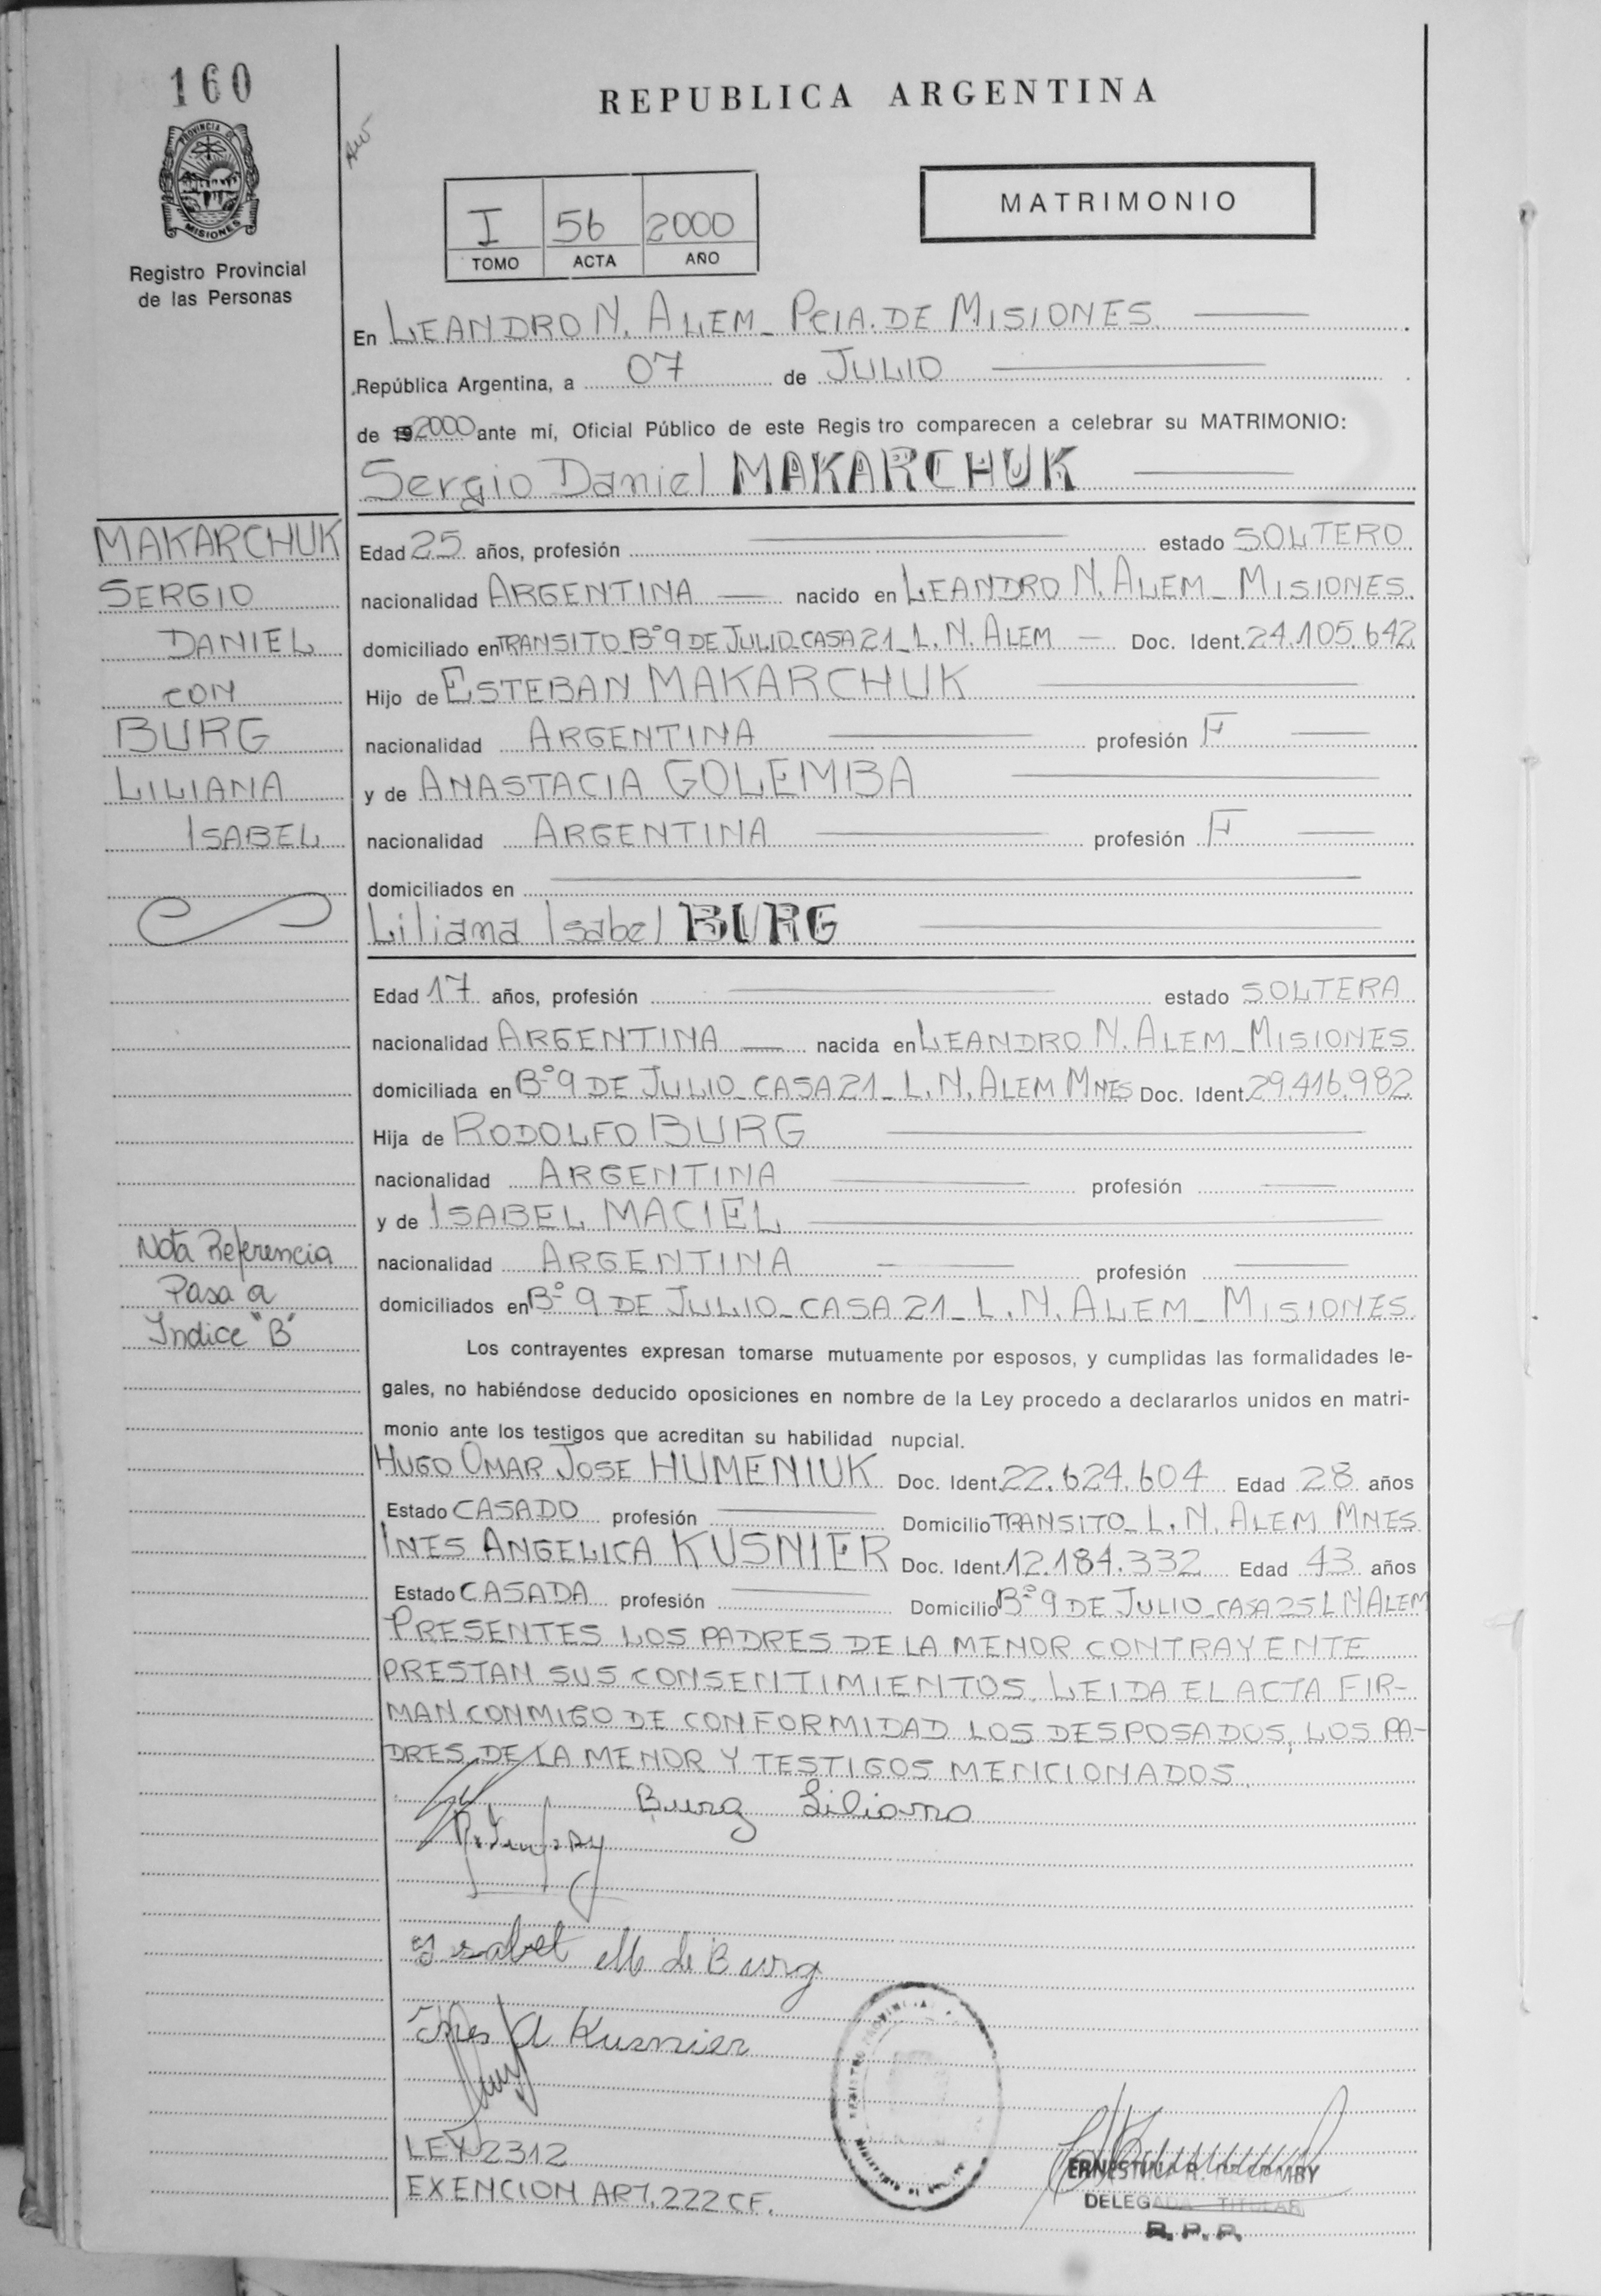 160
REPUBLICA ARGENTINA
PROVINCIA DE
MISIONES
Registro Provincial
de las Personas
I 56 2000
TOMO ACTA AÑO
MATRIMONIO
En LEANDRO N. ALEM - PCIA. DE MISIONES
República Argentina, a 07 de JULIO
de 192000 ante mí, Oficial Público de este Regis tro comparecen a celebrar su MATRIMONIO:
Sergio Daniel MAKARCHUK
MAKARCHUK
SERGIO
DANIEL
CON
BURG
LILIANA
ISABEL
Edad 25 años, profesión estado SOLTERO
nacionalidad ARGENTINA nacido en LEANDRO N. ALEM - MISIONES.
domiciliado en TRANSITO Bº 9 DE JULIO - CASA 21 - L. N. ALEM - Doc. Ident. 24.105.642
Hijo de ESTEBAN MAKARCHUK
nacionalidad ARGENTINA profesión F
y de ANASTACIA GOLEMBA
nacionalidad ARGENTINA profesión F
domiciliados en
Liliana Isabel BURG
Edad 17 años, profesión estado SOLTERA
nacionalidad ARGENTINA nacida en LEANDRO N. ALEM - MISIONES
domiciliada en Bº 9 DE JULIO - CASA 21 - L. N. ALEM MNES Doc. Ident. 29.416.982
Hija de RODOLFO BURG
nacionalidad ARGENTINA profesión
y de ISABEL MACIEL
nacionalidad ARGENTINA profesión
domiciliados en Bº 9 DE JULIO - CASA 21 - L. N. ALEM - MISIONES.
Nota Referencia
Pasa a
Indice "B"
Los contrayentes expresan tomarse mutuamente por esposos, y cumplidas las formalidades le-
gales, no habiéndose deducido oposiciones en nombre de la Ley procedo a declararlos unidos en matri-
monio ante los testigos que acreditan su habilidad nupcial.
HUGO OMAR JOSE HUMENIUK Doc. Ident. 22.624.604 Edad 28 años
Estado CASADO profesión Domicilio TRANSITO - L. N. ALEM MNES
INES ANGELICA KUSNIER Doc. Ident. 12.184.332 Edad 43 años
Estado CASADA profesión Domicilio Bº 9 DE JULIO - CASA 25 L N ALEM
PRESENTES LOS PADRES DE LA MENOR CONTRAYENTE
PRESTAN SUS CONSENTIMIENTOS. LEIDA EL ACTA FIR-
MAN CONMIGO DE CONFORMIDAD LOS DESPOSADOS, LOS PA-
DRES DE LA MENOR Y TESTIGOS MENCIONADOS.
Burg Liliana
Isabel M de Burg
Ines A Kusnier
LEY 2312
EXENCION ART. 222 CF.
DELEGADA TITULAR
R. P. P.